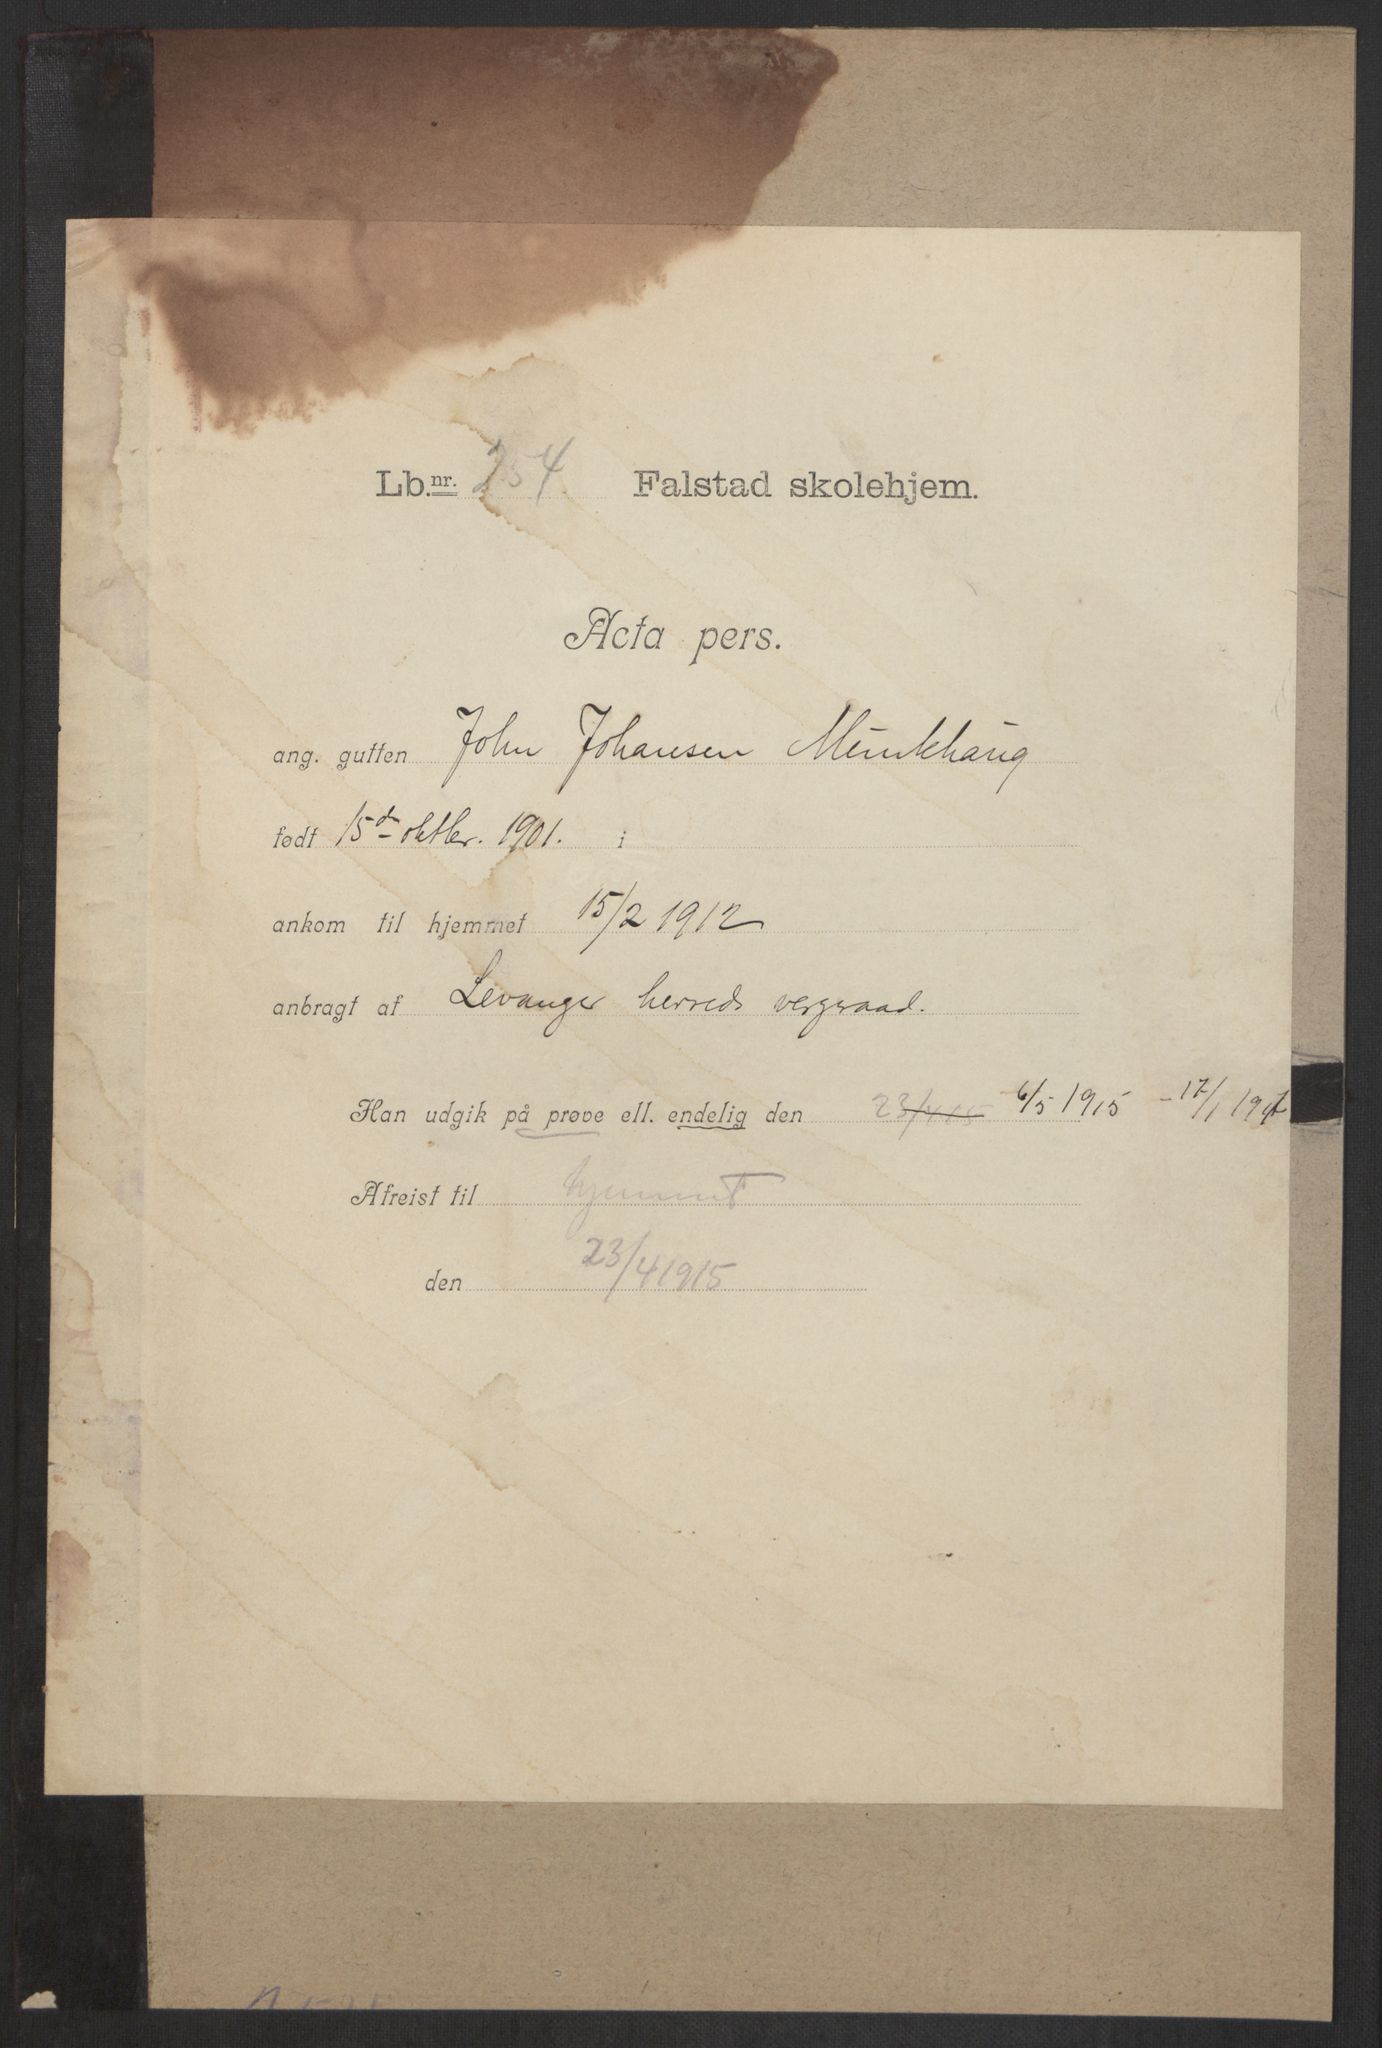 Lb.nr. 254 Falstad skolehjem.
Acta pers.
ang. gutten John Johansen Munkhaug
født 15de oktbr. 1901. i
ankom til hjemmet 15/2 1912
anbragt af Levanger herreds vergeraad.
Han udgik på prøve ell. endelig den 23/4 15 6/5 1915 - 17/1 1917
Afreist til hjemmet
den 23/4 1915